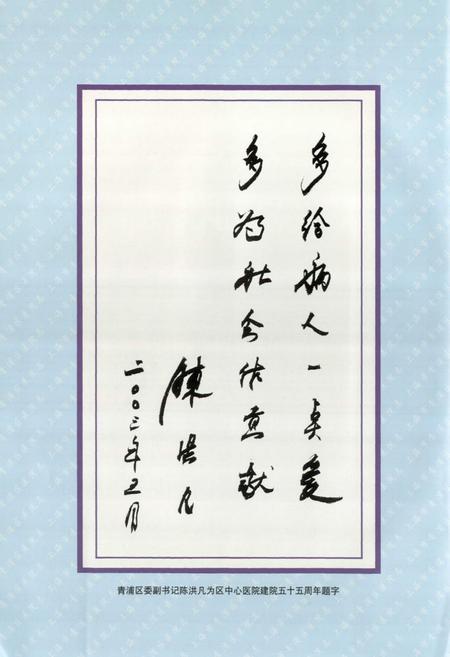 多给病人一点爱
多为社会作贡献
陈洪凡
二〇〇三年五月
青浦区委副书记陈洪凡为区中心医院建院五十五周年题字